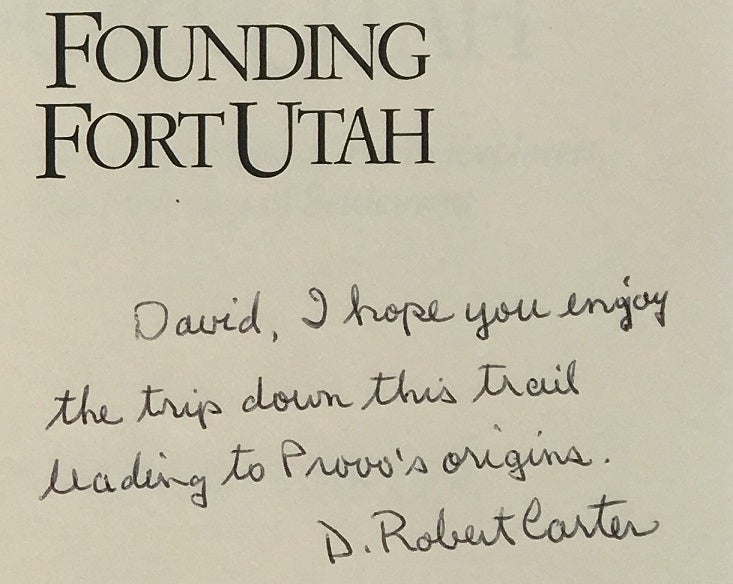 FOUNDING
FORT UTAH
David, I hope you enjoy
the trip down this trail
leading to Provo's origins.
D. Robert Carter